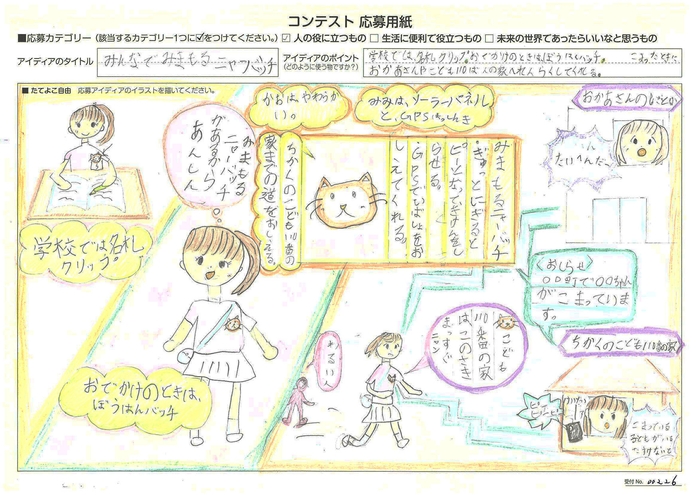 コンテスト 応募用紙
■応募カテゴリー(該当するカテゴリー1つに☑をつけてください。) ☑ 人の役に立つもの □ 生活に便利で役立つもの □ 未来の世界であったらいいなと思うもの
アイディアのタイトル
みんなでみまもるニャンバッチ
アイディアのポイント
(どのように使う物ですか?)
学校では、名札クリップ。おでかけのときはぼうはんバッチ。こまったときに
■たてよこ自由 応募アイディアのイラストを描いてください。
学校では名札
クリップ。
みまもる
ニャンバッチ
があるから
あんしん
おでかけのときは、
ぼうはんバッチ
かおは、やわらか
い。
みみは、ソーラーパネル
みまもるニャーバッチ
ぎゅっとにぎると
らせる。
GPSでいばしょをお
しえてくれる。
ちかくのこども110番の
家までの道をおしえる。
わるい人
こども
110番の家
は、このさき
まっすぐ
ニャン
おかあさんの
たいへんだ
〈おしらせ〉
〇〇町で〇〇ちゃん
がこまっていま
す。
ちかくのこども110番の家
こまっている
子どもがいる
受付No. 00226